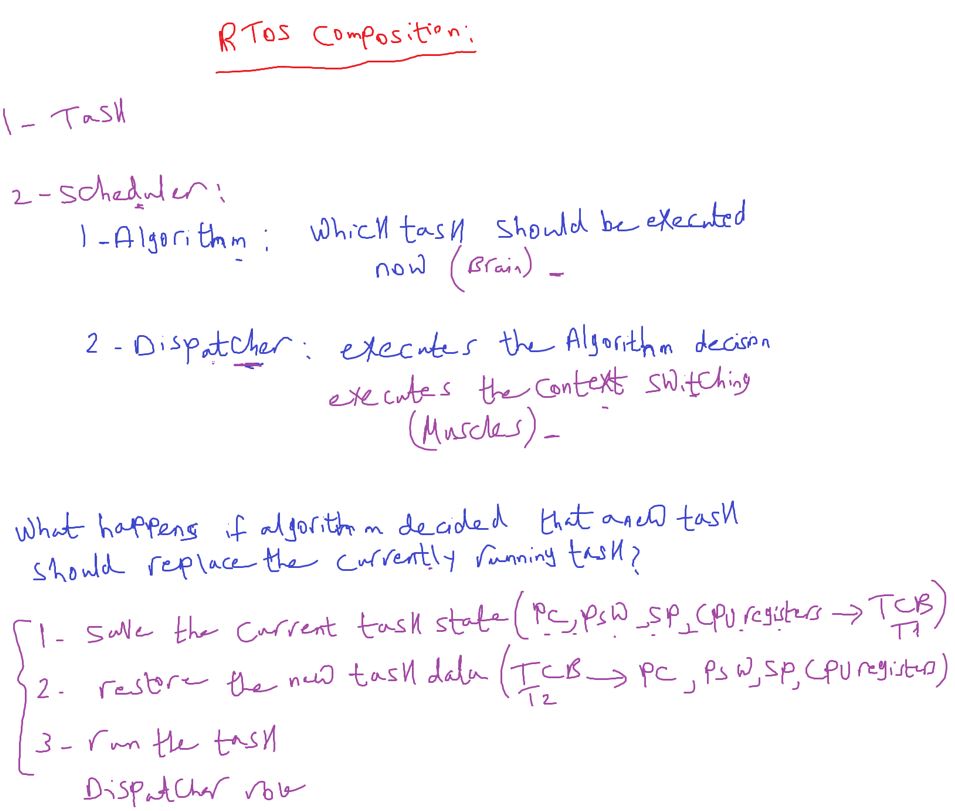 RTOS Composition:
1- Task
2- Scheduler:
1- Algorithm: which task should be executed
now (Brain) -
2- Dispatcher: executes the Algorithm decision
executes the context switching
(Muscles) -
What happens if algorithm decided that a new task
should replace the currently running task?
1- save the current task state (PC, PSW, SP, CPU registers → TCB
T1)
2- restore the new task data (TCB → PC, PSW, SP, CPU registers)
T2
3- run the task
Dispatcher role